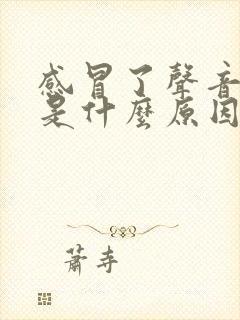 感冒了聲音
是什麼原因
蕭寺